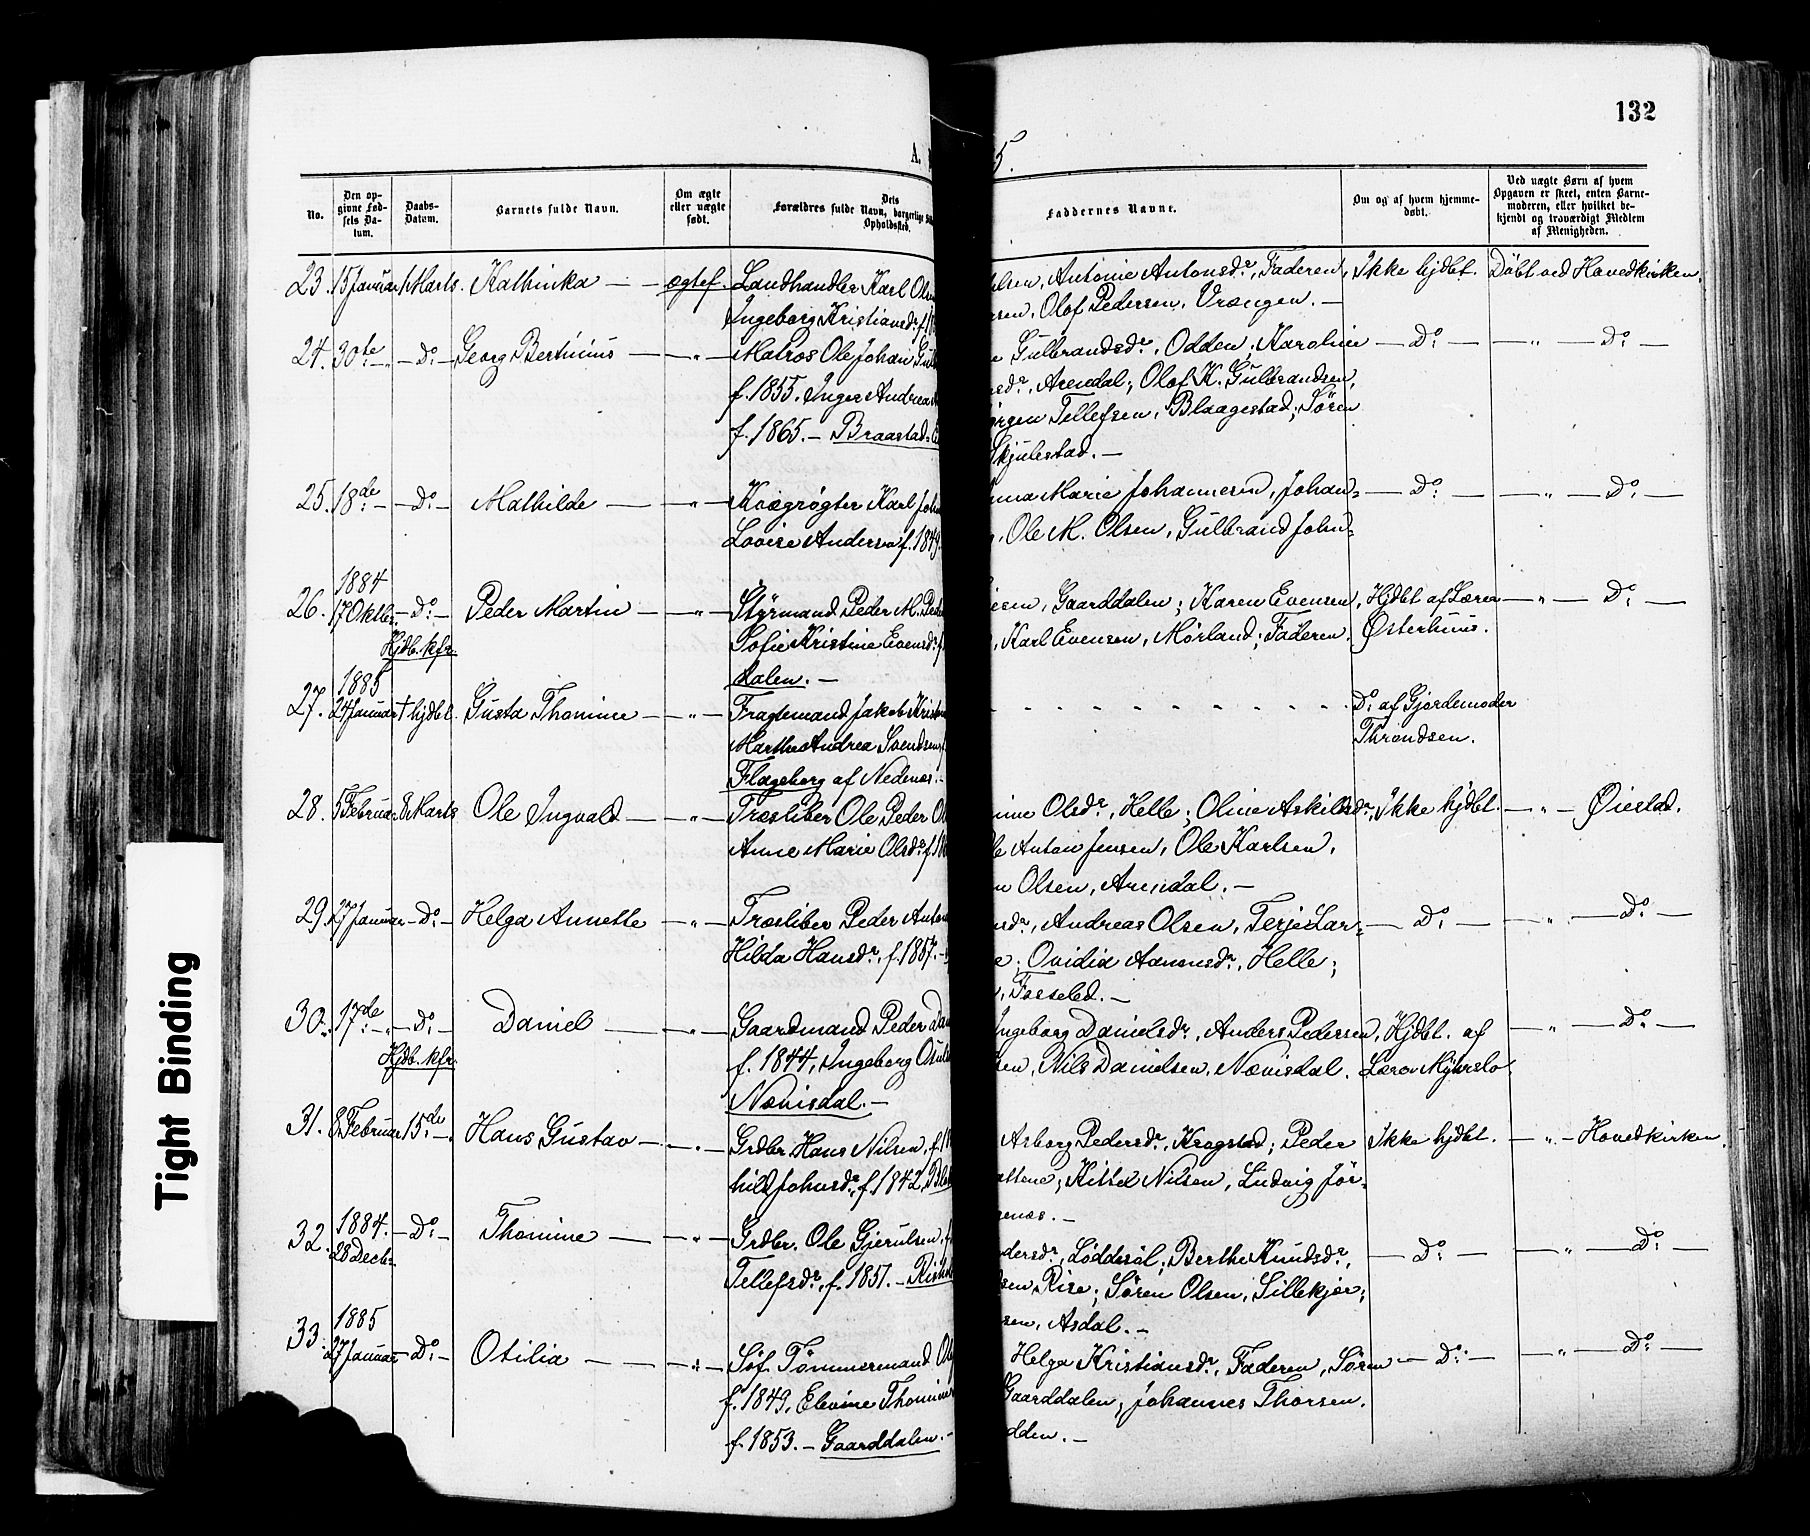 132
A.
5.
No.
Den op-
givne Fød-
sels Da-
tum.
Daabs-
Datum.
Barnets fulde Navn.
Om ægte
eller uægte
født.
Dets
Forældres fulde Navn, borgerlige
Opholdssted.
Faddernes Navne.
Om og af hvem hjemme-
døbt.
Ved uægte Børn af hvem
Opgaven er skeet, enten Barne-
moderen, eller hvilket be-
kjendt og troværdigt Medlem
af Menigheden.
23. 15 Januar 1 Marts. Kathinka — — ægtef. Landhandler Karl Ols
Ingeborg Kristiansdr. f.
lsen, Antonie Antonsdr., Faderen,
sen, Olof Pedersen, Vrængen. —
Ikke hjdbt. Döbt ved Hovedkirken.
24. 30te — " — Do. — Georg Bertinius — " — Matros Ole Johan Gul
f. 1855. Inger Andrea
f. 1865. — Braastad
e Gulbrandsdr., Odden; Karoline
sdr., Arendal; Olof K. Gulbrandsen,
ørgen Tellefsen, Blaagestad; Sören
Skjulestad. —
— Do. — — " — Do. —
25. 18de — Do. — Mathilde — " — Kvægrøgter Karl Joh
Lovise Andersen f. 1849.
nna Marie Johannesen, Johan-
, Ole M. Olsen, Gulbrand John-
— Do. — — " — Do. —
26. 1884
17 Oktbr. — Do. — Peder Martin — " — Styrmand Peder M. Ped
Hjdb. kfr.
Sofie Kristine Evensdr.
dalen. —
sen, Gaarddalen; Karen Evensen,
, Karl Evensen, Mørland; Faderen.
Hjdbt af Lærer
Østerhuus.
— " — Do. —
27. 1885
24 Januar † hjdbt. Gusta Thomine — " — Fragtemand Jakob Krist
Marthe Andrea Svendsen
Flageborg af Nedenes. —
Do. af Gjordemoder
Throndsen.
28. 5 Februar 8 Marts Ole Ingvald — " — Træsliber Ole Peder Ol
Anne Marie Olsdr. f. 18
ine Olsdr., Helle; Oline Askildsdr.,
le Anton Jensen, Ole Karlsen,
n Olsen, Arendal. —
Ikke hjdbt. — " — Øiestad.
29. 27 Januar — Do. — Helga Annette — " — Træsliber Peder Anton
Hilda Hansdr., f. 1857. —
sdr., Andreas Olsen, Terje Lar-
e; Ovidia Aanonsdr., Helle;
, Fosseled. —
— Do. — — " — Do. —
30. 17de — " — Do. — Daniel — " — Gaardmand Peder Da
Hjdb. kfr.
f. 1844, Ingeborg Osul
Nævisdal. —
Ingeborg Danielsdr., Anders Pedersen,
sen, Nils Danielsen, Nævisdal.
Hjdbt. af
Lærer Myhrslo
— " — Do. —
31. 8 Februar 15de — Hans Gustav — " — Grdbr. Hans Nilsen, f. 18
hild Johnsdr., f. 1842,
Asborg Pedersdr., Kragstad; Peder
attene; Kittel Nilsen, Ludvig Jör-
enes. —
Ikke hjdbt. — " — Hovedkirken.
32. 1884.
28 Decbr. — Do. — Thomine — " — Grdbr. Ole Gjerulsen, f.
Tellefsdr., f. 1851. —
dersdr., Löddesöl; Berthe Knudsdr.,
sen, Rise; Sören Olsen, Sillekjær;
sen, Asdal. —
— Do. — — " — Do. —
33. 1885
27 Januar — Do. — Otilia — " — Söf. Tömmermand Ol
f. 1849, Elevine Thomine
f. 1853. — Gaarddalen. —
Helga Kristiansdr., Faderen, Sören
Gaarddalen; Johannes Thorsen,
dden. —
— Do. — — " — Do. —
Tight Binding